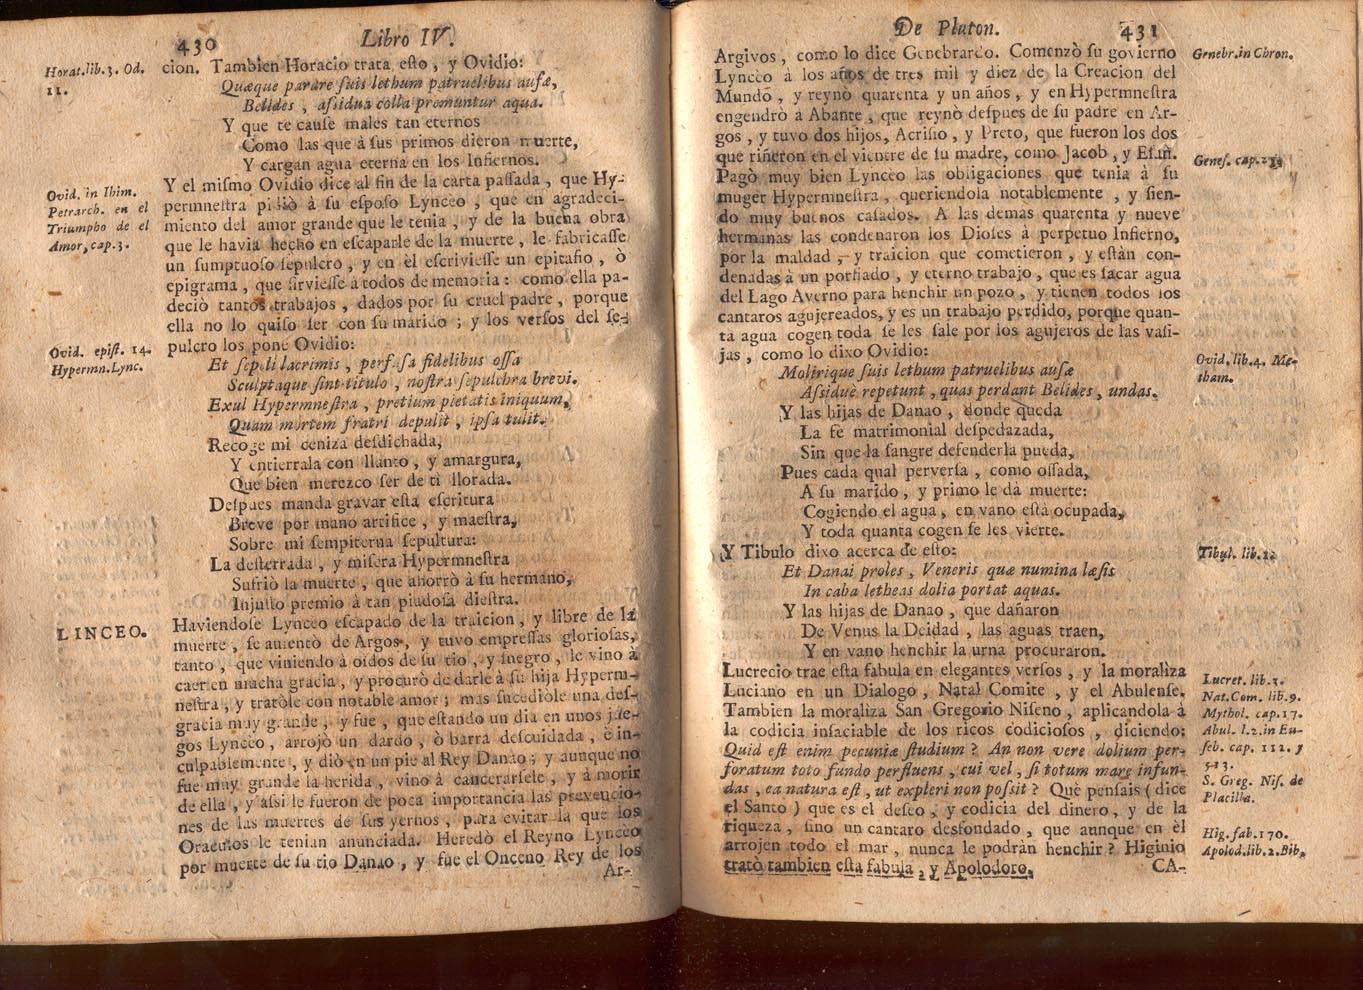 430 Libro IV.
Horat. lib. 3. Od.
11.
cion. Tambien Horacio trata esto, y Ovidio:
Quæque parare suis lethum patruelibus ausæ,
Belides, assidua colla premuntur aqua.
Y que te cause males tan eternos
Como las que à sus primos dieron muerte,
Y cargan agua eterna en los Infiernos.
Ovid. in Ibim.
Petrarch. en el
Triumpho de el
Amor, cap. 3.
Y el mismo Ovidio dice al fin de la carta passada, que Hy-
permnestra pidiò à su esposo Lynceo, que en agradeci-
miento del amor grande que le tenia, y de la buena obra
que le havia hecho en escaparle de la muerte, le fabricasse
un sumptuoso sepulcro, y en èl escriviesse un epitafio, ò
epigrama, que sirviesse à todos de memoria: como ella pa-
deciò tantos trabajos, dados por su cruel padre, porque
ella no lo quiso ser con su marido; y los versos del se-
pulcro los pone Ovidio:
Ovid. epist. 14.
Hypermn. Lync.
Et sepeli lacrimis, perfusa fidelibus ossa
Sculptaque sint titulo, nostra sepulchra brevi.
Exul Hypermnestra, pretium pietatis iniquum,
Quam mortem fratri depulit, ipsa tulit.
Recoge mi ceniza desdichada,
Y entierrala con llanto, y amargura,
Que bien merezco ser de ti llorada.
Despues manda gravar esta escritura
Breve por mano artifice, y maestra,
Sobre mi sempiterna sepultura:
La desterrada, y misera Hypermnestra
Sufriò la muerte, que ahorrò à su hermano,
Injusto premio à tan piadosa diestra.
LINCEO.
Haviendose Lynceo escapado de la traicion, y libre de la
muerte, se ausentò de Argos, y tuvo empressas gloriosas,
tanto, que viniendo à oidos de su tio, y suegro, le vino à
caer en mucha gracia, y procurò de darle à su hija Hyperm-
nestra, y tratòle con notable amor; mas sucediòle una des-
gracia muy grande, y fue, que estando un dia en unos jue-
gos Lynceo, arrojò un dardo, ò barra descuidada, è in-
culpablemente, y diò en un pie al Rey Danao; y aunque no
fue muy grande la herida, vino à cancerarsele, y à morir
de ella, y assi le fueron de poca importancia las prevencio-
nes de las muertes de sus yernos, para evitar la que los
Oraculos le tenian anunciada. Heredò el Reyno Lynceo
por muerte de su tio Danao, y fue el Onceno Rey de los
Ar-
De Pluton. 431
Argivos, como lo dice Genebrardo. Comenzò su govierno
Lynceo à los años de tres mil y diez de la Creacion del
Mundo, y reynò quarenta y un años, y en Hypermnestra
engendrò à Abante, que reynò despues de su padre en Ar-
gos, y tuvo dos hijos, Acrisio, y Preto, que fueron los dos
que riñeron en el vientre de su madre, como Jacob, y Esaù.
Pagò muy bien Lynceo las obligaciones que tenia à su
muger Hypermnestra, queriendola notablemente, y sien-
do muy buenos casados. A las demas quarenta y nueve
hermanas las condenaron los Dioses à perpetuo Infierno,
por la maldad, y traicion que cometieron, y estàn con-
denadas à un porfiado, y eterno trabajo, que es sacar agua
del Lago Averno para henchir un pozo, y tienen todos los
cantaros agujereados, y es un trabajo perdido, porque quan-
ta agua cogen toda se les sale por los agujeros de las vasi-
jas, como lo dixo Ovidio:
Genebr. in Chron.
Genes. cap.
Ovid. lib. 4. Me-
tham.
Molirique suis lethum patruelibus ausæ
Assiduè repetunt, quas perdant Belides, undas.
Y las hijas de Danao, donde queda
La fe matrimonial despedazada,
Sin que la sangre defenderla pueda,
Pues cada qual perversa, como ossada,
A su marido, y primo le dà muerte:
Cogiendo el agua, en vano està ocupada,
Y toda quanta cogen se les vierte.
Y Tibulo dixo acerca de esto:
Tibul. lib. 1.
Et Danai proles, Veneris quæ numina læsis
In caba letheas dolia portat aquas.
Y las hijas de Danao, que dañaron
De Venus la Deidad, las aguas traen,
Y en vano henchir la urna procuraron.
Lucrecio trae esta fabula en elegantes versos, y la moraliza
Luciano en un Dialogo, Natal Comite, y el Abulense.
Tambien la moraliza San Gregorio Niseno, aplicandola à
la codicia insaciable de los ricos codiciosos, diciendo:
Quid est enim pecuniæ studium? An non vere dolium per-
foratum toto fundo perfluens, cui vel, si totum mare infun-
das, ea natura est, ut expleri non possit? Què pensais (dice
el Santo) que es el deseo, y codicia del dinero, y de la
riqueza, sino un cantaro desfondado, que aunque en èl
arrojen todo el mar, nunca le podràn henchir? Higinio
tratò tambien esta fabula, y Apolodoro.
Lucret. lib. 3.
Nat. Com. lib. 9.
Mythol. cap. 17.
Abul. l. 2. in Eu-
seb. cap. 112. y
513.
S. Greg. Nis. de
Placilla.
Hig. fab. 170.
Apolod. lib. 2. Bib.
CA-